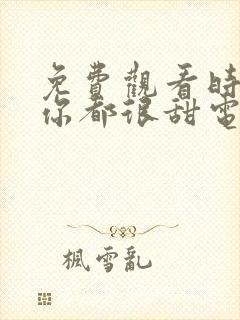 免費觀看時
你都很甜電
楓雪亂